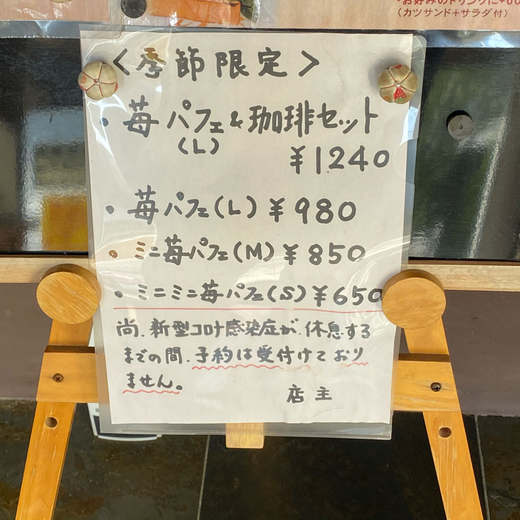 ・お好みのドリンクに+
(カツサンド+サラダ付)
<季節限定>
・苺パフェ&珈琲セット
(L) ¥1240
・苺パフェ(L)¥980
・ミニ苺パフェ(M)¥850
・ミニミニ苺パフェ(S)¥650
尚、新型コロナ感染症が、休息する
までの間、予約は受付けており
ません。
店主